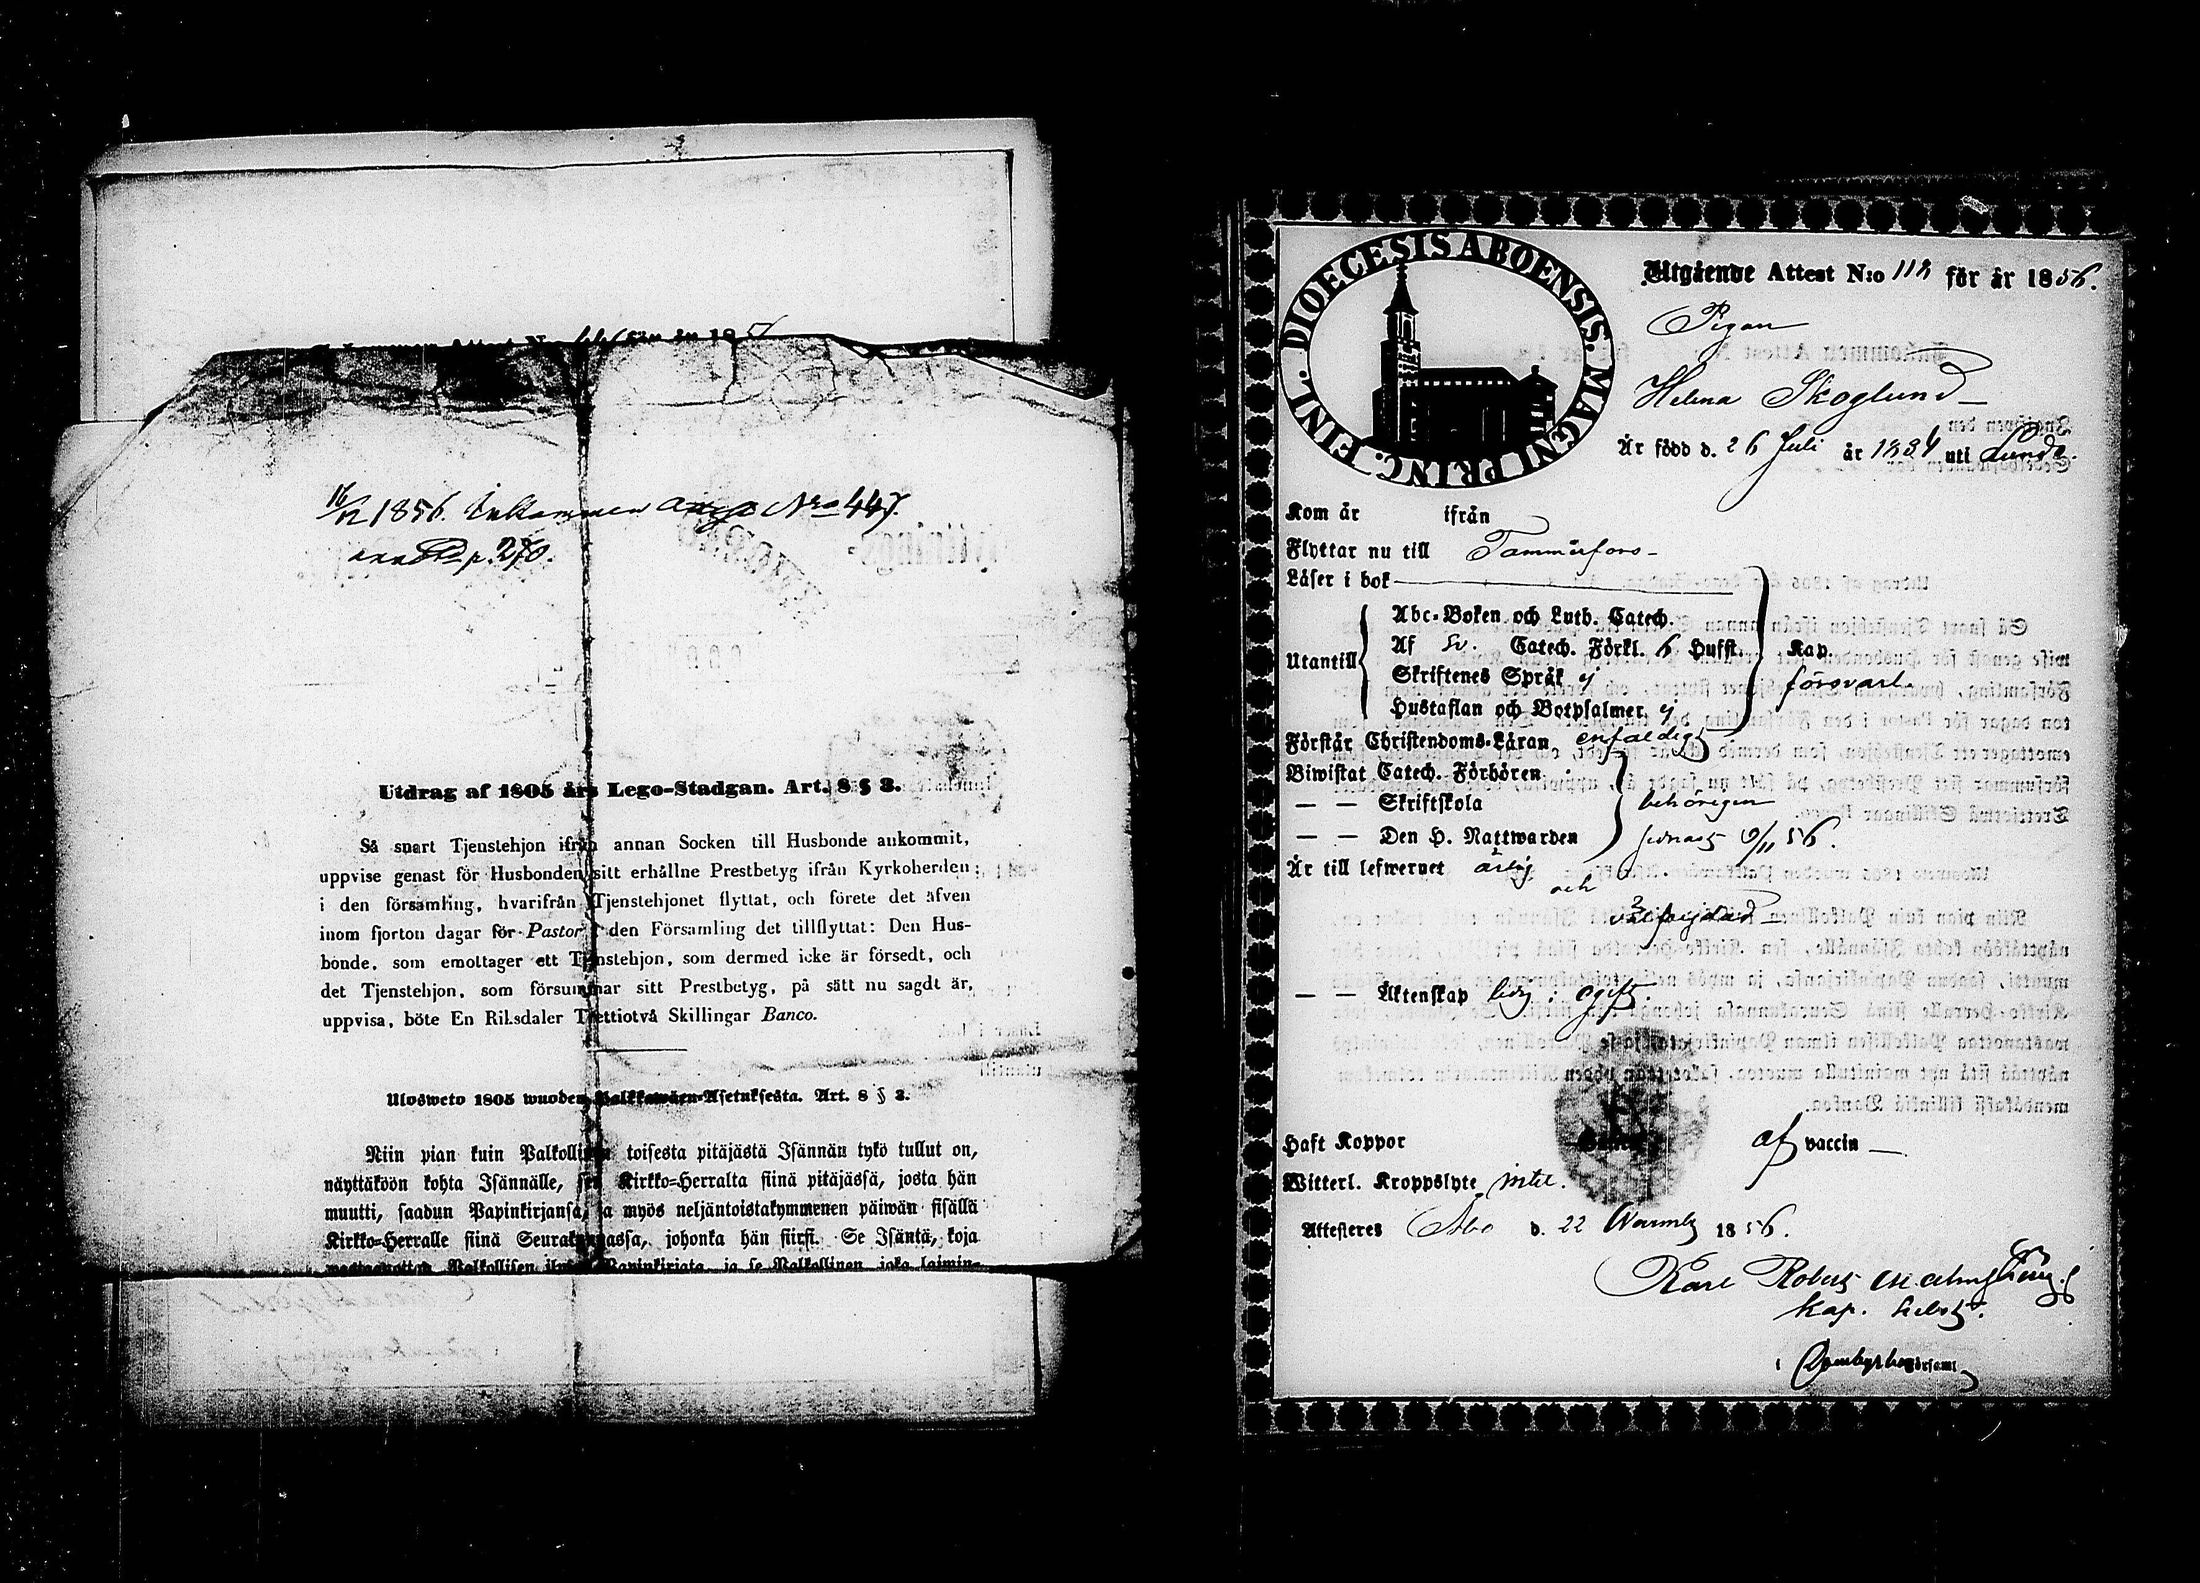 16/12 1856. Inkommen N:o 447.
p. 270.
Utdrag af 1805 års Lego-Stadgan. Art. 8 § 3.
Så snart Tjenstehjon ifrån annan Socken till Husbonde ankommit,
uppvise genast för Husbonden sitt erhållne Prestbetyg ifrån Kyrkoherden
i den församling, hvarifrån Tjenstehjonet flyttat, och förete det äfven
inom fjorton dagar för Pastor i den Församling det tillflyttat: Den Hus-
bonde, som emottager ett Tjenstehjon, som dermed icke är försedt, och
det Tjenstehjon, som försummar sitt Prestbetyg, på sätt nu sagdt är,
uppvisa, böte En Riksdaler Trettiotvå Skillingar Banco.
Ulosweto 1805 wuoden Palkkawäen-Asetuksesta. Art. 8 § 3.
Niin pian kuin Palkollinen toisesta pitäjästä Isännän tykö tullut on,
näyttäköön kohta Isännälle, sen Kirkko-Herralta siinä pitäjässä, josta hän
muutti, saadun Papinkirjansa, ja myös neljäntoistakymmenen päiwän sisällä
Kirkko-Herralle siinä Seurakunnassa, johonka hän siirsi. Se Isäntä, koja
wastaanottaa Palkollisen ilman Papinkirjata, ja se Palkollinen, joka laimin-
DIOECESIS ABOENSIS. MAGNI PRINC. FINL.
Utgående Attest N:o 112 för år 1856.
Pigan
Helena Skoglund
Är född d. 26 Juli år 1834 uti Lundo.
Kom år ifrån
Flyttar nu till Tammerfors
Läser i bok
Utantill
Abc-Boken och Luth. Catech.
Af Sv. Catech. Förkl. 6 Hufst. Kap.
Skriftenes Språk ej försvarl.
Hustaflan och Botpsalmer ej
Förstår Christendoms-Läran enfaldigt
Biwistat Catech. Förhören
— — Skriftskola behörigen
— — Den H. Nattwarden sednast 9/11 56.
Är till lefwernet ärlig
och
välfrejdad
— — Äktenskap ledig; ogift.
Haft Koppor af vaccin
Witterl. Kroppslyte intet.
Attesteres Åbo d. 22 Novemb 1856.
Karl Robert Malmström
Kap.
i Domkyrko Församl